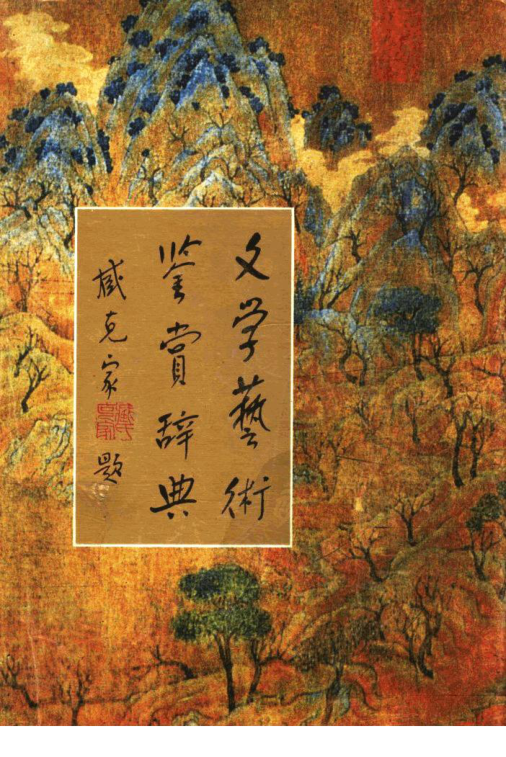 文学藝術
鉴赏辞典
臧克家
题